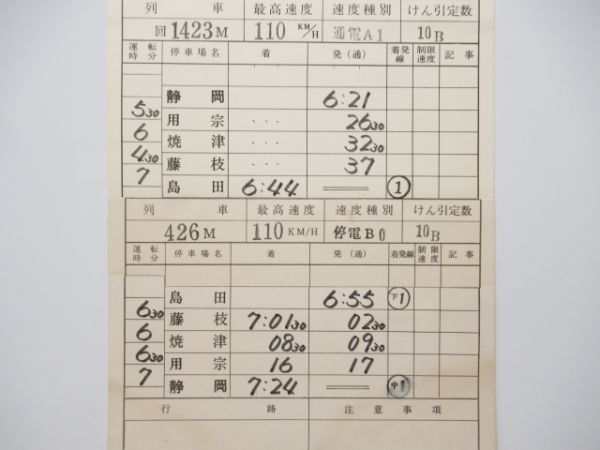 列 車 最高速度 速度種別 けん引定数
回 1423M 110 KM/H 通電A1 10B
運転時分 停車場名 着 発(通) 着発線 制限速度 記事
静 岡 6:21
530
用 宗 ・・・ 2630
6
焼 津 ・・・ 3230
430
藤 枝 ・・・ 37
7
島 田 6:44 == 1
列 車 最高速度 速度種別 けん引定数
426M 110 KM/H 停電B0 10B
運転時分 停車場名 着 発(通) 着発線 制限速度 記事
島 田 6:55 下1
630
藤 枝 7:0130 0230
6
焼 津 0830 0930
630
用 宗 16 17
7
静 岡 7:24 == 中1
行 路 注意事項